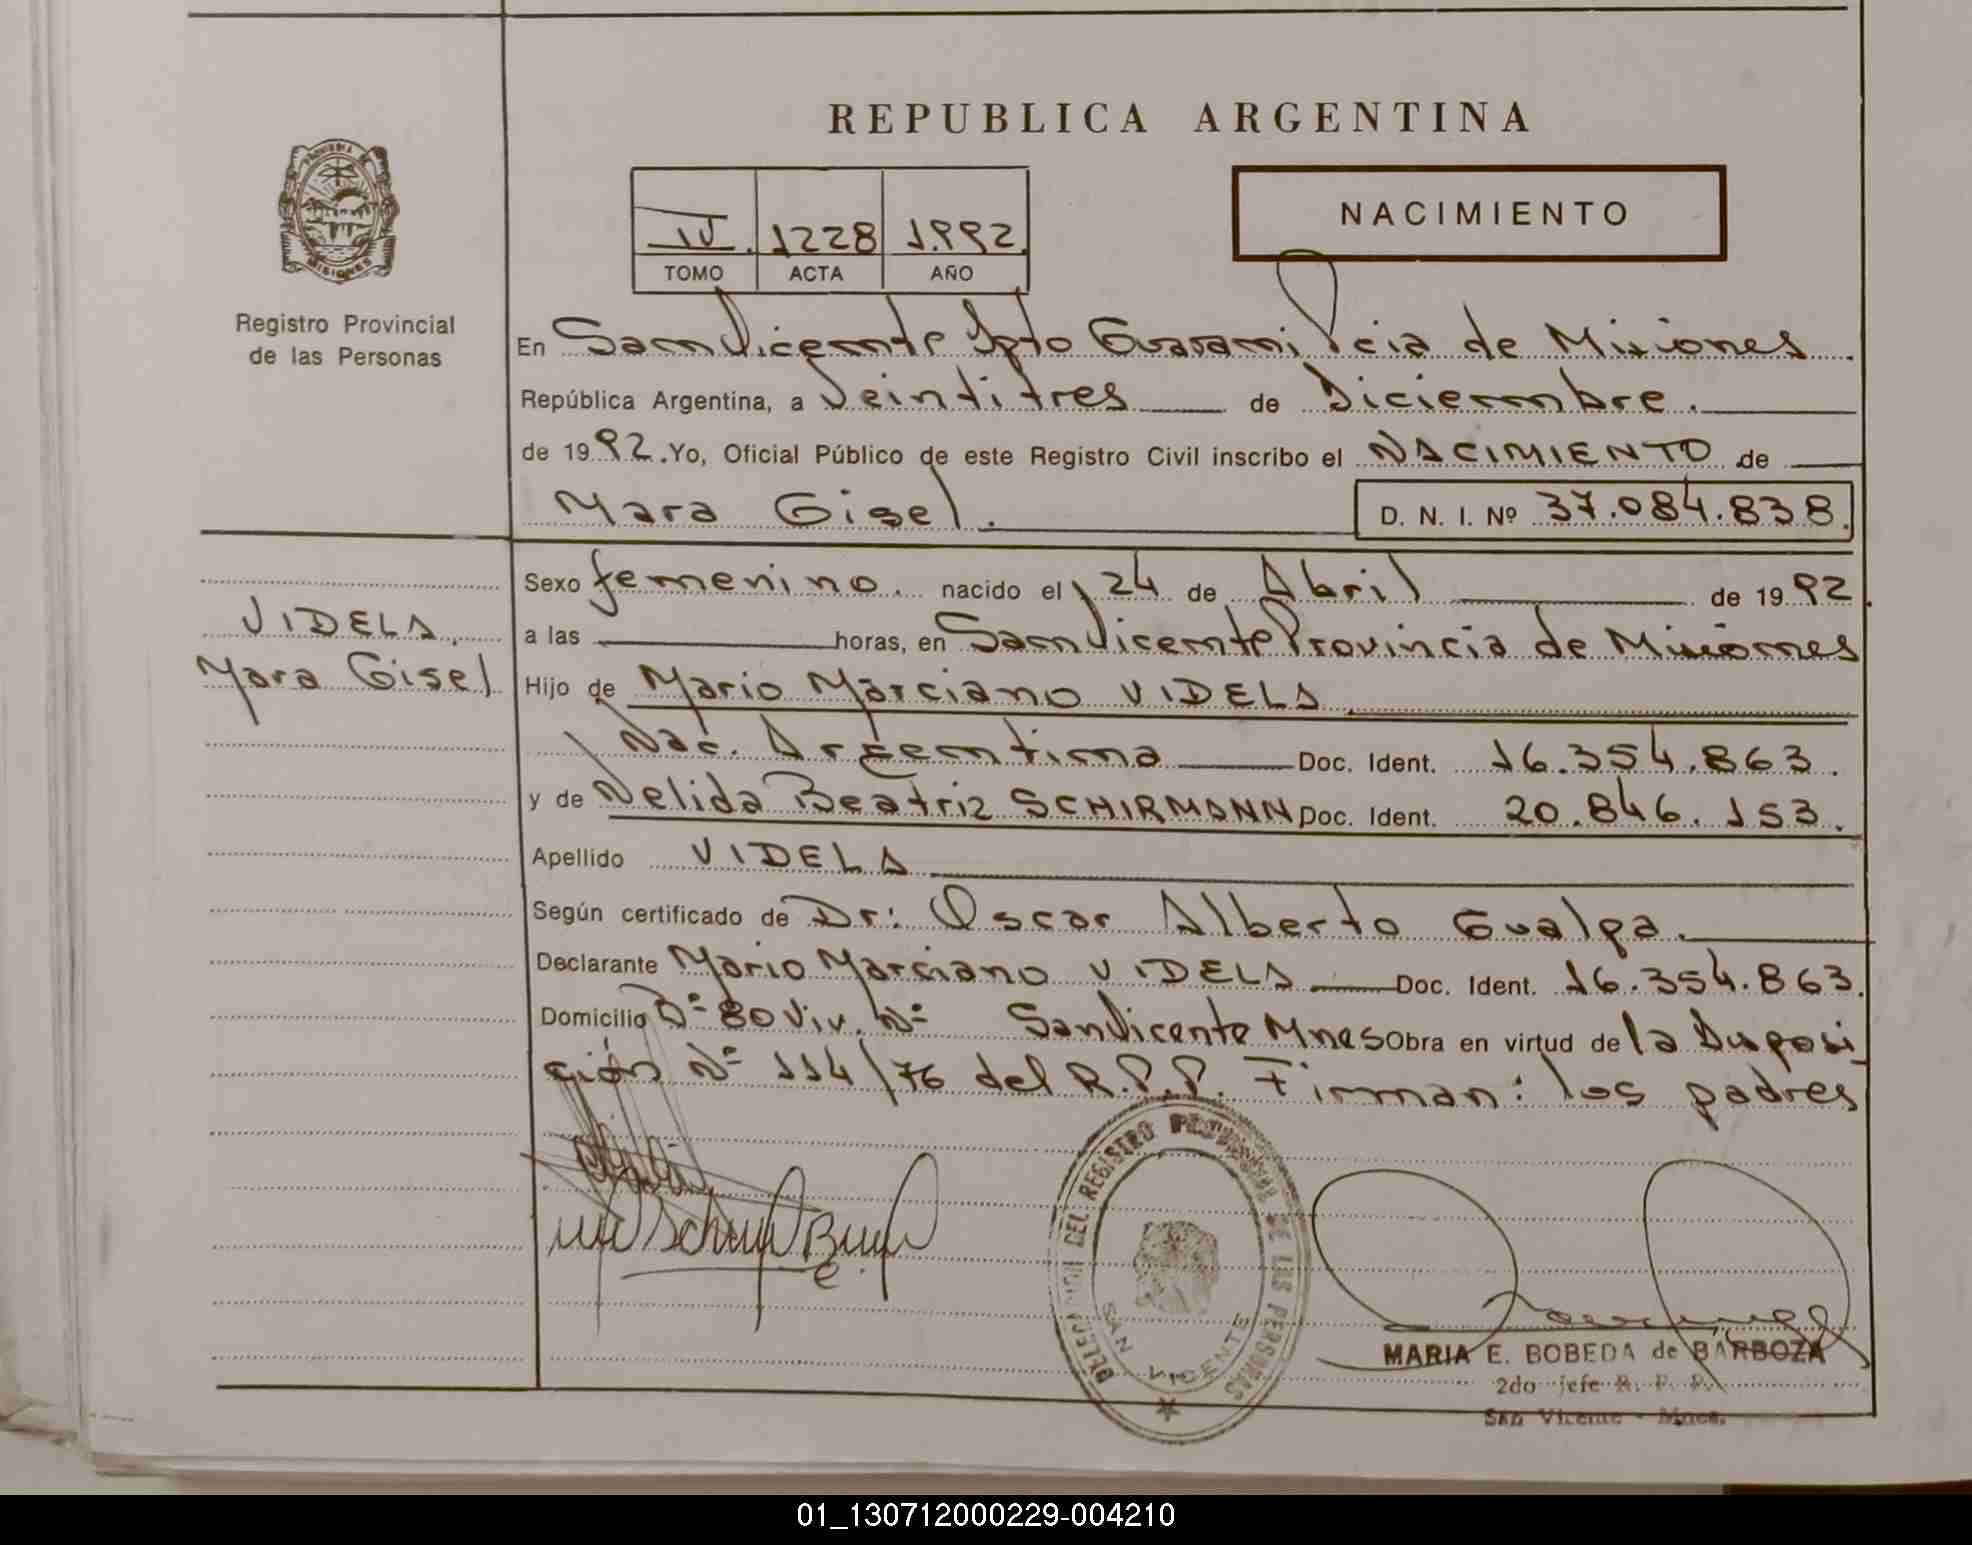 REPUBLICA ARGENTINA
PROVINCIA DE
MISIONES
Registro Provincial
de las Personas
NACIMIENTO
IV. 1228 1.992.
TOMO ACTA AÑO
En San Vicente Dpto Guaraní Pcia de Misiones
República Argentina, a Veintitres de Diciembre.
de 1992. Yo, Oficial Público de este Registro Civil inscribo el NACIMIENTO de
Mara Gisel. D. N. I. Nº 37.084.838.
VIDELA.
Mara Gisel
Sexo femenino. nacido el 24 de Abril de 1992.
a las horas, en San Vicente Provincia de Misiones
Hijo de Mario Marciano VIDELA.
Nac. Argentina Doc. Ident. 16.354.863.
y de Nelida Beatriz SCHIRMANN Doc. Ident. 20.846.153.
Apellido VIDELA
Según certificado de Dr: Oscar Alberto Gualpa.
Declarante Mario Marciano VIDELA Doc. Ident. 16.354.863.
Domicilio Bº 80 Viv. Nº San Vicente Mnes Obra en virtud de la Disposi
ción Nº 114/76 del R.P.P. Firman: los padres
DELEGACION DEL REGISTRO PROVINCIAL DE LAS PERSONAS
SAN VICENTE
MARIA E. BOBEDA de BARBOZA
2do jefe R. P. P.
San Vicente - Mnes.
01_130712000229-004210